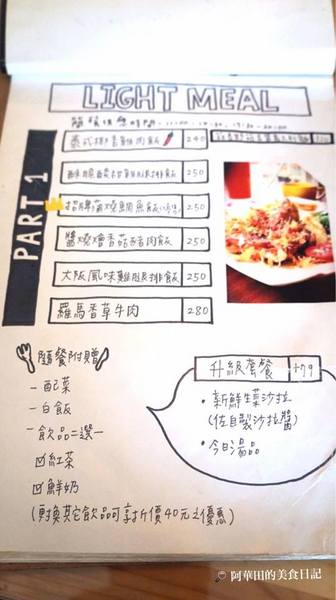 LIGHT MEAL
PART 1
泰式椒香雞肉飯 240
250
招牌蒲燒鯛魚飯 250
醬燒燴香菇豬肉飯 250
大阪風味雞腿排飯 250
羅馬香草牛肉 280
隨餐附贈
- 配菜
- 白飯
- 飲品二選一
☑紅茶
☑鮮奶
(兌換其它飲品可享折價40元之優惠)
升級套餐 +79
• 新鮮生菜沙拉
(佐自製沙拉醬)
• 今日湯品
阿華田的美食日記